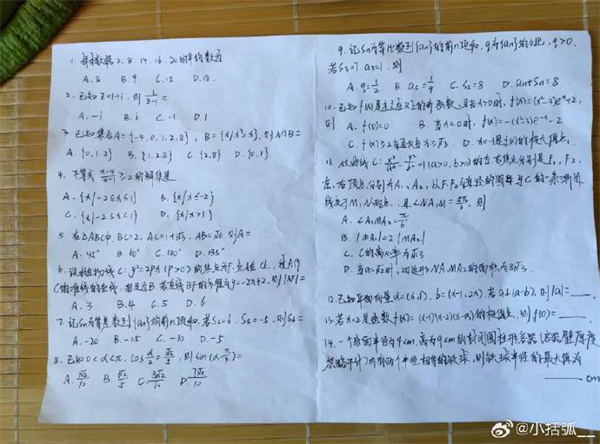 1. 样本数据2.8.14.16.20的平均数为
A.8 B.9 C.12 D.18.
2.已知z=1+i,则1/(z-1)=
A.-i B.i C.-1 D.1
3.已知集合A={-4,0,1.2.8}, B={x|x³=x},则A∩B=
A.{0,1.2} B.{1.2.8} C.{2.8} D.{0.1}
4.不等式 ≥2的解集是
A.{x|-2≤x≤1} B.{x|x≤-2}
C.{x|-2≤x<1} D.{x|x>1}
5.在△ABC中,BC=2, AC=1+√3, AB=√6,则A=
A.45° B.60° C.120° D.135°
6.设抛物线C:y²=2px(p>0)的焦点为F.点A在C上,过A作
C的准线的垂线,垂足为B.若直线BF的方程为y=-2x+2,则|AF|=
A.3 B.4 C.5 D.6
7.记Sn为等差数列{an}的前n项和.若S3=6. S5=-5,则S6=
A.-20 B.-15 C.-10 D.-5
8.已知0<α<π. cos α/2=√5/5,则sin(α-π/4)=
A.√2/10 B.√2/5 C.3√2/10 D.7√2/10
9.记Sn为等比数列{an}的前n项和,q为{an}的公比,q>0.
若S3=7. a3=1,则
A.q=1/2 B.a5=1/9 C.S5=8 D.an+Sn=8
10.已知f(x)是定义在R上的奇函数,且当x>0时,f(x)=(x²-3)e^x+2,
则 A.f(0)=0 B.当x<0时,f(x)=-(x²-3)e^-x-2
C.f(x)≥2当且仅当x≥√3 D.x=-1是f(x)的极大值点.
11.双曲线C:x²/a²-y²/b²=1(a>0,b>0)的左右焦点分别是F1、F2,
左、右顶点分别为A1,A2,以F1F2为直径的圆与C的一条渐近
线交于M,N两点,且∠NA1M=5π/6,则
A.∠A1MA2=π/6
B.|MA1|=2|MA2|
C.C的离心率为√13
D.当a=√2时,四边形NA1MA2的面积为8√3
12.已知平面向量a=(x,1), b=(x-1,2x),若a⊥(a-b),则|a|=___.
13.若x=2是函数f(x)=(x-1)(x-2)(x-a)的极值点,则f(0)=___.
14.一个底面半径为4cm,高为9cm的封闭圆柱形容器(容器壁厚度
忽略不计)内有两个半径相等的铁球,则铁球半径的最大值为
___cm
@小括弧__